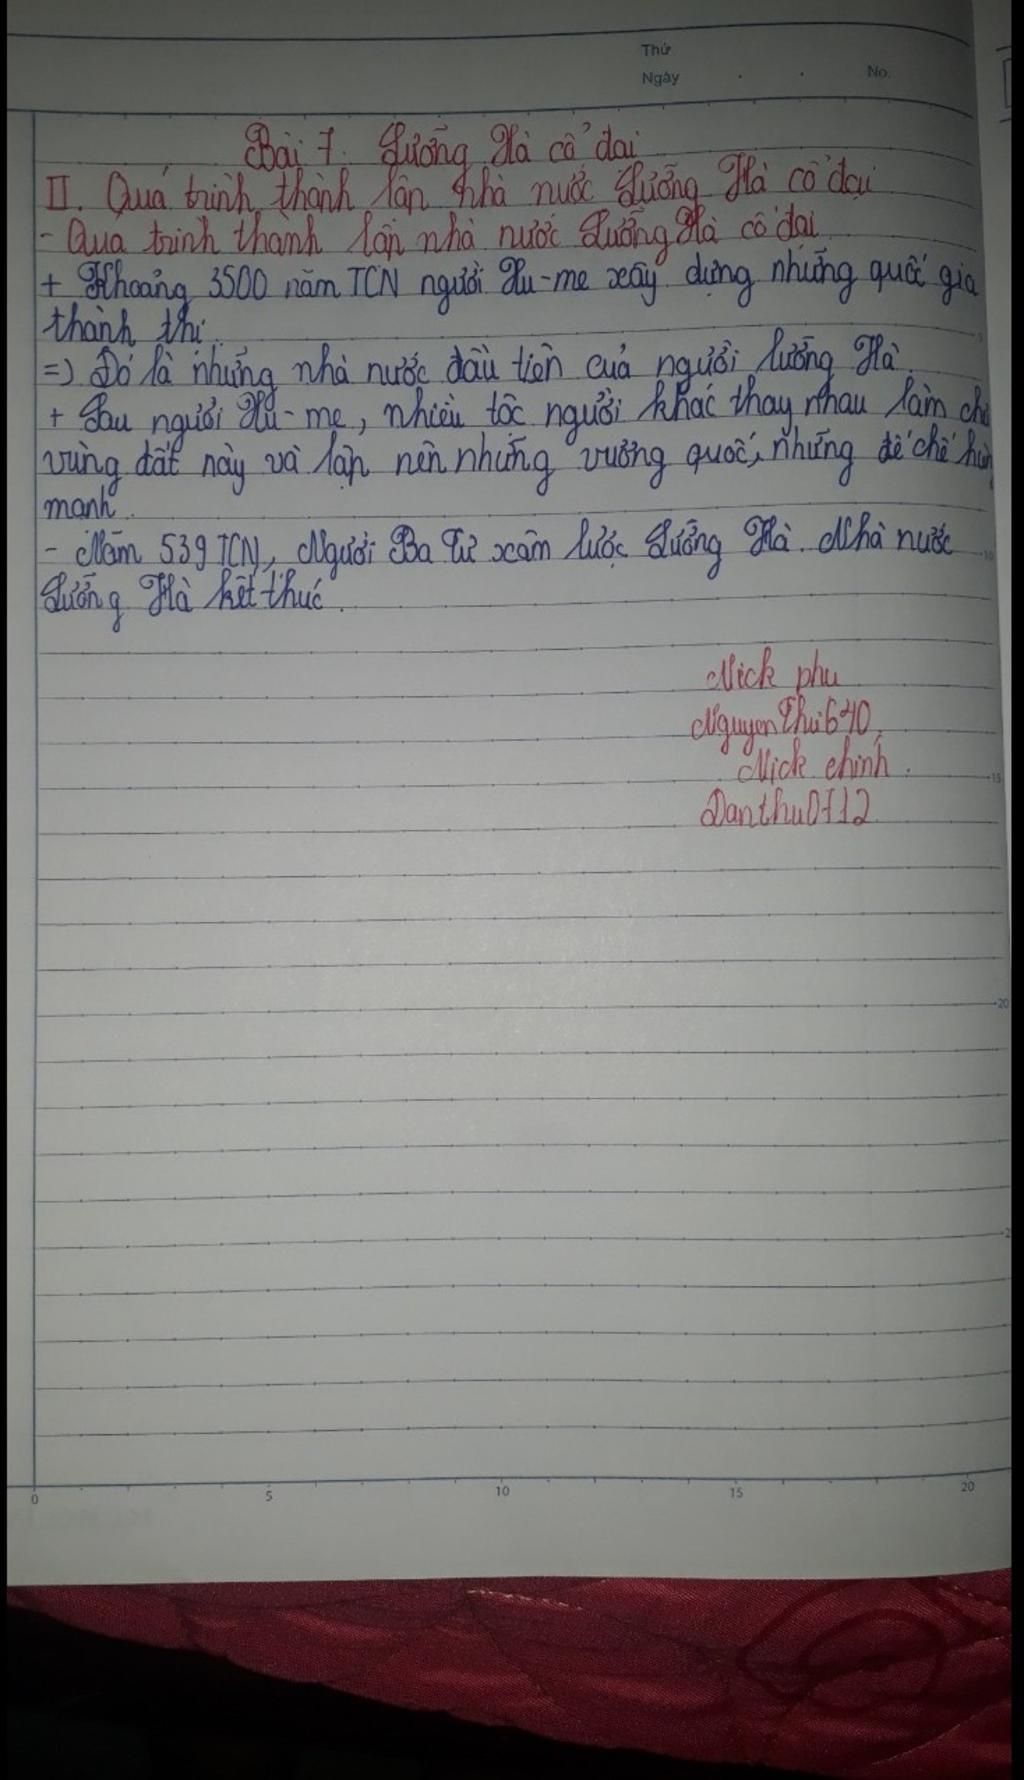 Thứ
Ngày . . No.
Bài 7. Lưỡng Hà cổ đại
II. Quá trình thành lập nhà nước Lưỡng Hà cổ đại
- Qua trinh thanh lập nhà nước Lưỡng Hà cổ đại
+ Khoảng 3500 năm TCN người Xu-me xây dựng những quốc gia
thành thị.
=) Đó là những nhà nước đầu tiên của người lưỡng Hà.
+ Sau người Xu-me, nhiều tộc người khác thay nhau làm chủ
vùng đất này và lập nên những vương quốc, những đế chế hùng
mạnh.
- Năm 539 TCN, Người Ba Tư xâm lược Lưỡng Hà. Nhà nước
Lưỡng Hà kết thúc.
Nick phu
NguyenThu640.
Nick chinh.
Danthu0712
10
15
20
0 5 10 15 20